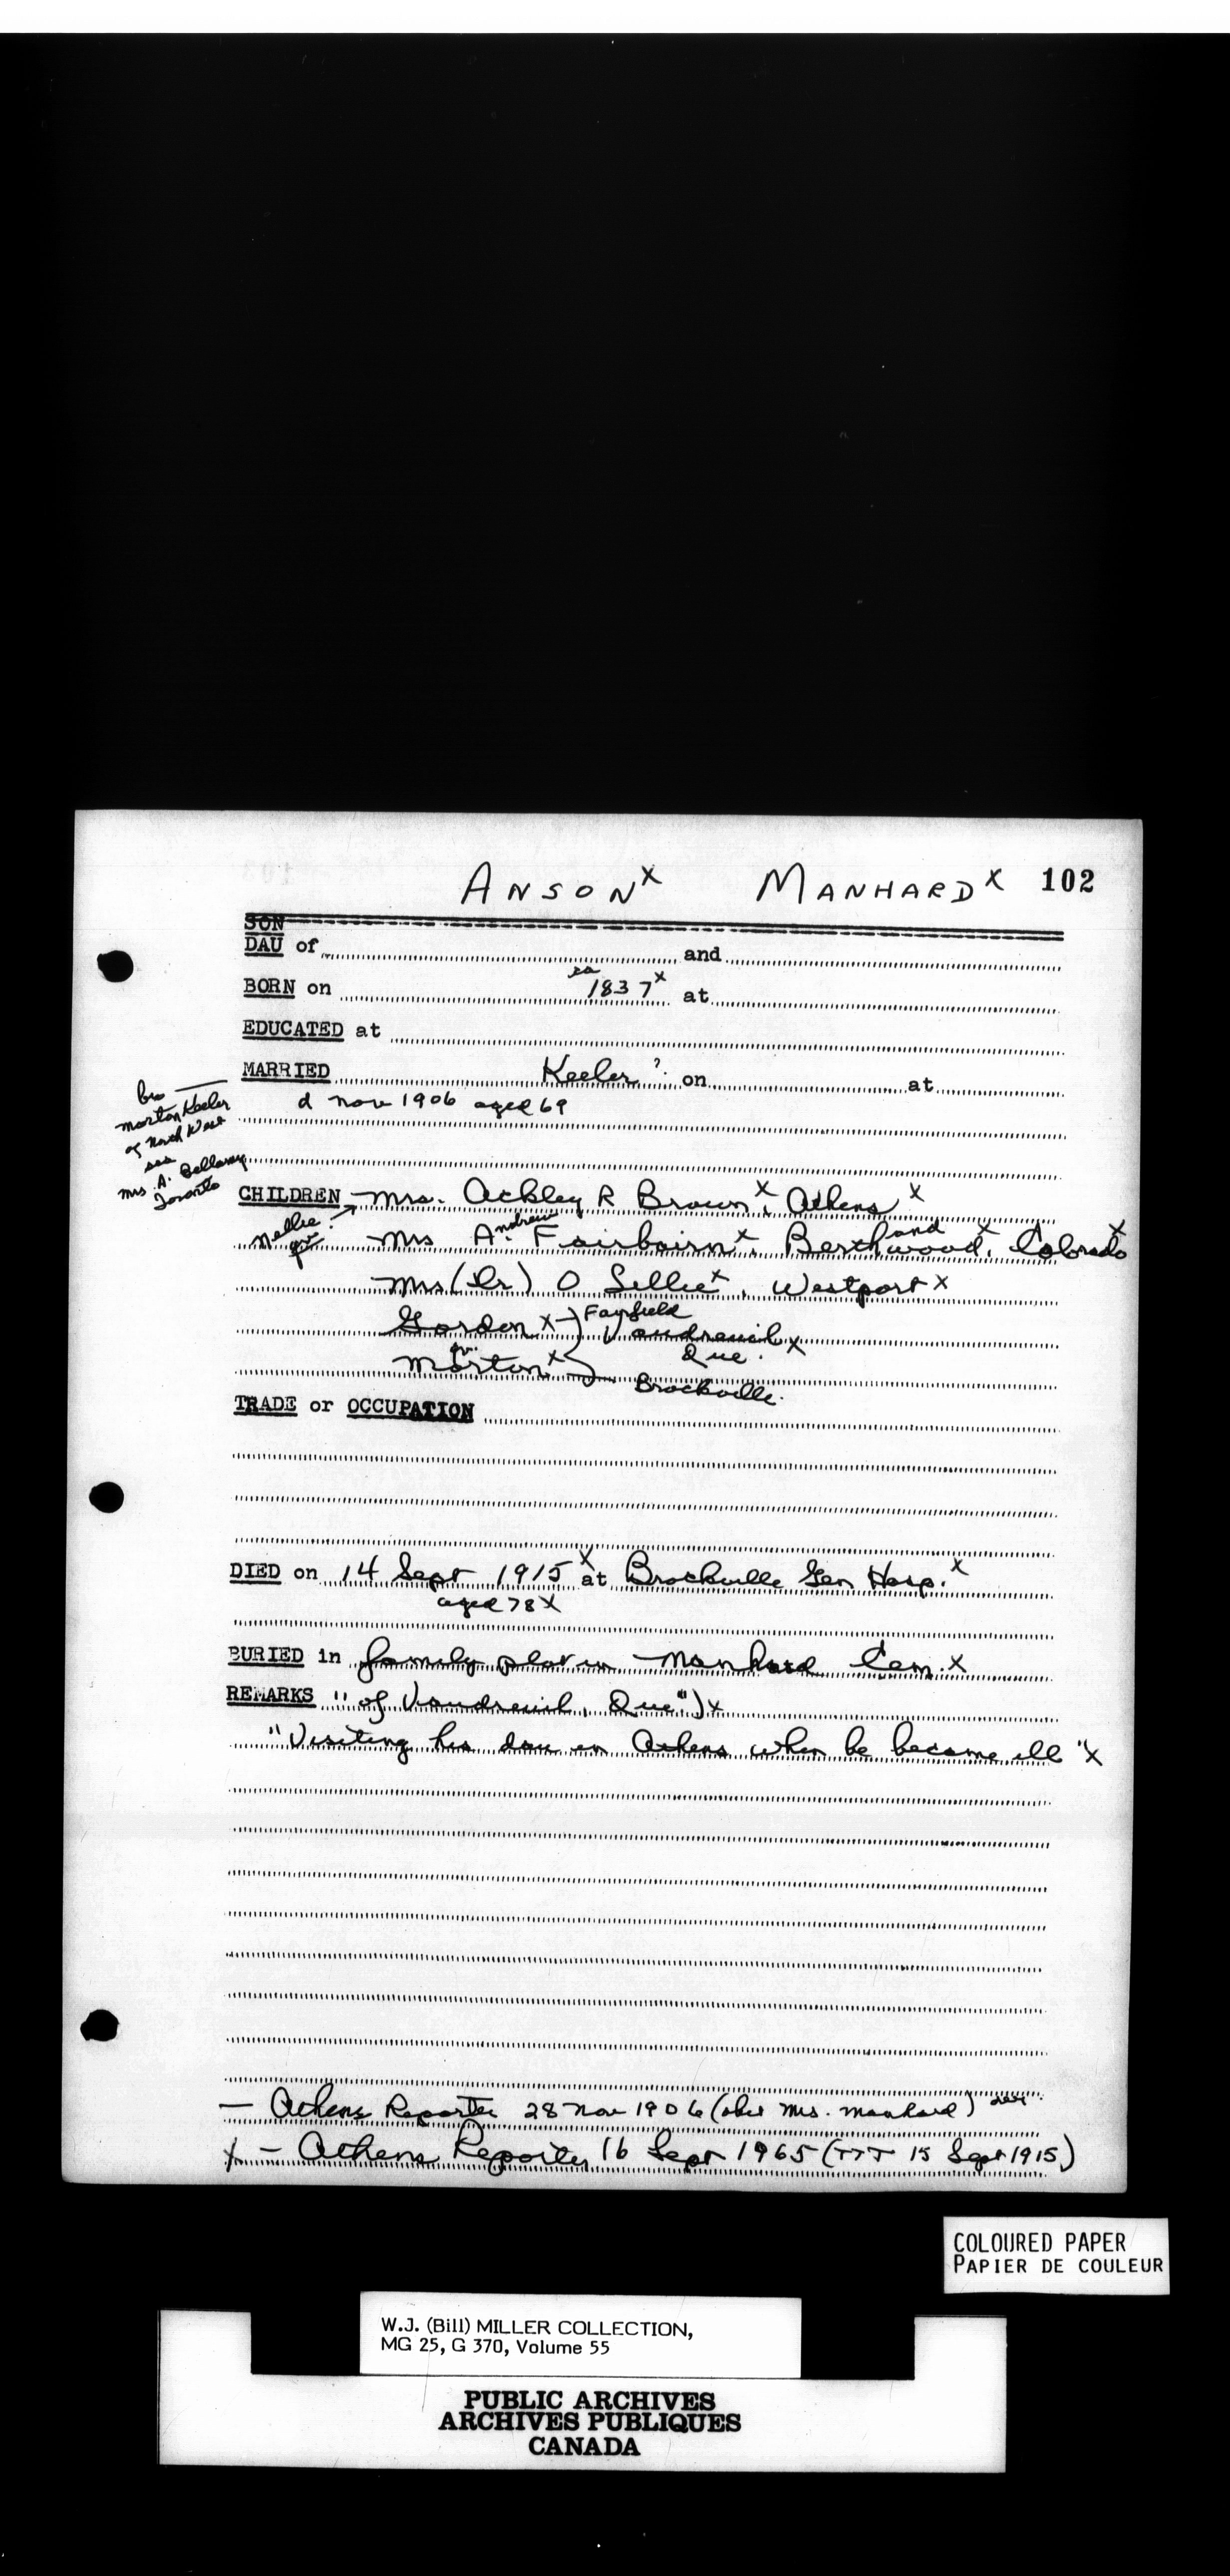 ANSON x MANHARD x 102
SON
DAU of and
BORN on ca 1837 x at
EDUCATED at
MARRIED Keeler ? on at
d Nov 1906 aged 69
bro
Morton Keeler
of North West
sis
Mrs A. Bellamy
Toronto
CHILDREN Mrs. Ackley R Brown x, Athens x
Nellie ?
qv
Mrs Andrew Fairbairn x. Berthwood and x, Colorado x
Mrs (Dr) O Lillie x, Westport x
Gordon x Fayfield
Vaudreuil
Que. x
qv.
Morton x Brockville.
TRADE or OCCUPATION
DIED on 14 Sept 1915 x at Brockville Gen Hosp. x
aged 78 x
BURIED in family plot in Manhard Cem. x
REMARKS "of Vaudreuil, Que") x
"Visiting his dau in Athens when he became ill" x
— Athens Reporter 28 Nov 1906 (obit Mrs. Manhard)
x — Athens Reporter, 16 Sept 1965 (TTT 15 Sept 1915)
COLOURED PAPER
PAPIER DE COULEUR
W.J. (Bill) MILLER COLLECTION,
MG 25, G 370, Volume 55
PUBLIC ARCHIVES
ARCHIVES PUBLIQUES
CANADA